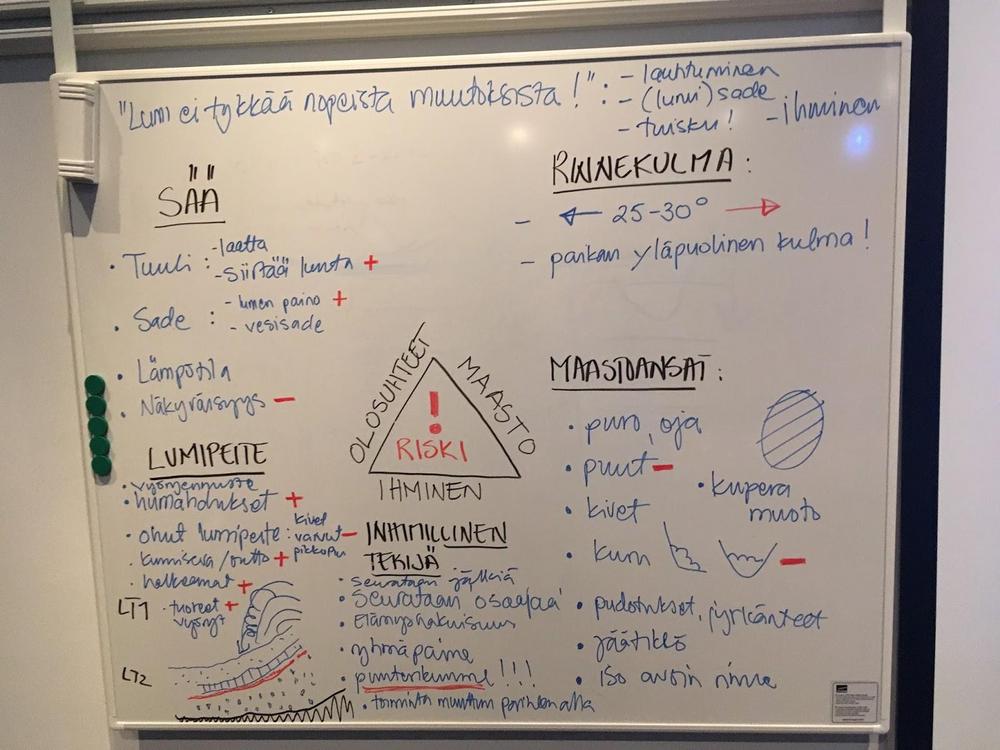 "Lumi ei tykkää nopeista muutoksista!": - lauhtuminen
- (lumi)sade
- tuisku! - ihminen
SÄÄ
• Tuuli : - laatta
- siirtää lunta +
• Sade : - lumen paino +
- vesisade
• Lämpötila
• Näkyväisyys -
LUMIPEITE
• humahdukset +
• ohut lumipeite : kivet
varvut -
• halkeamat +
LT1 • tuoreet +
vyöryt
LT2
RINNEKULMA :
- ← 25-30° →
- paikan yläpuolinen kulma!
OLOSUHTEET
MAASTO
IHMINEN
!
RISKI
INHIMILLINEN
TEKIJÄ
• seurataan jälkiä
• Seurataan osaajaa
• Elämyshakuisuus
• ryhmäpaine
• puuterikuume!!!
• toiminta muuttuu porukan alla
MAASTOANSAT :
• puro, oja
• puut -
• kivet
• kupera
muoto
• kuru -
• pudotukset, jyrkänteet
• jäätikkö
• iso avoin rinne